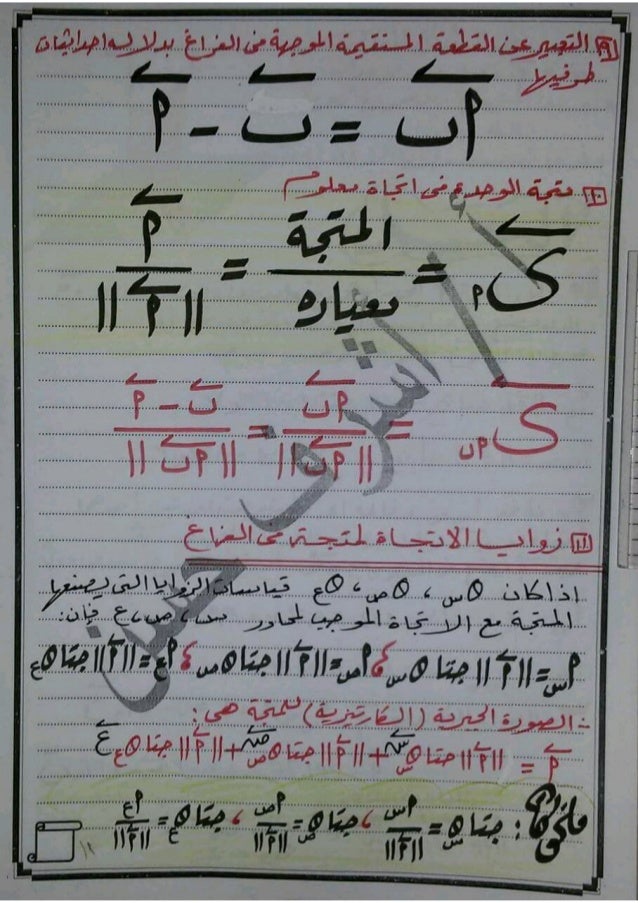 ٩ التعبير عن القطعة المستقيمة الموجهة فى الفراغ بدلالة احداثيات
طرفيها
أب = ب - أ
١٠ متجة الوحدة فى اتجاة معلوم
ى أ = المتجة / معياره = أ / ||أ||
ى أب = أب / ||أب|| = ب - أ / ||أب||
١١ زوايا الاتجاة لمتجة فى الفراغ
اذا كان هـ س ، هـ ص ، هـ ع قياسات الزوايا التى يصنعها
المتجة مع الاتجاة الموجب لمحاور س ، ص ، ع فإن:
أس = ||أ|| جتا هـ س ، أص = ||أ|| جتا هـ ص ، أع = ||أ|| جتا هـ ع
∴ الصورة الجبرية (الكارتيزية) للمتجة هى:
أ = ||أ|| جتا هـ س س + ||أ|| جتا هـ ص ص + ||أ|| جتا هـ ع ع
: جتا هـ س = أس / ||أ|| ، جتا هـ ص = أص / ||أ|| ، جتا هـ ع = أع / ||أ||
أ / أشرف حسن